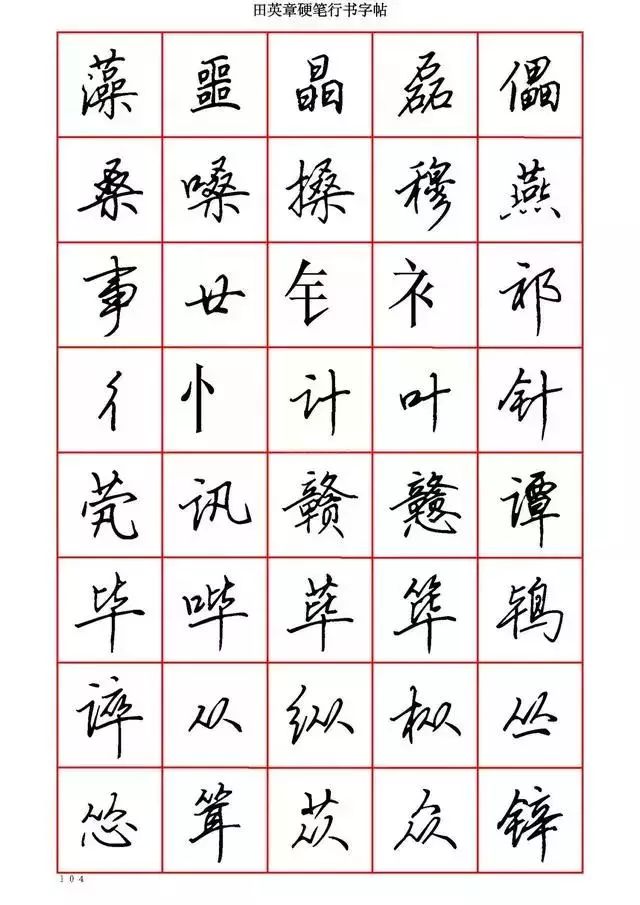 田英章硬笔行书字帖
藻 噩 晶 磊 儡
桑 嗓 搡 穆 燕
事 廿 祁
彳 忄 计 叶 针
茕 讯 赣 戆 谭
毕 哔 荜 筚 鸨
谇 从 纵 枞 丛
怂 耸 苁 众 锌
104